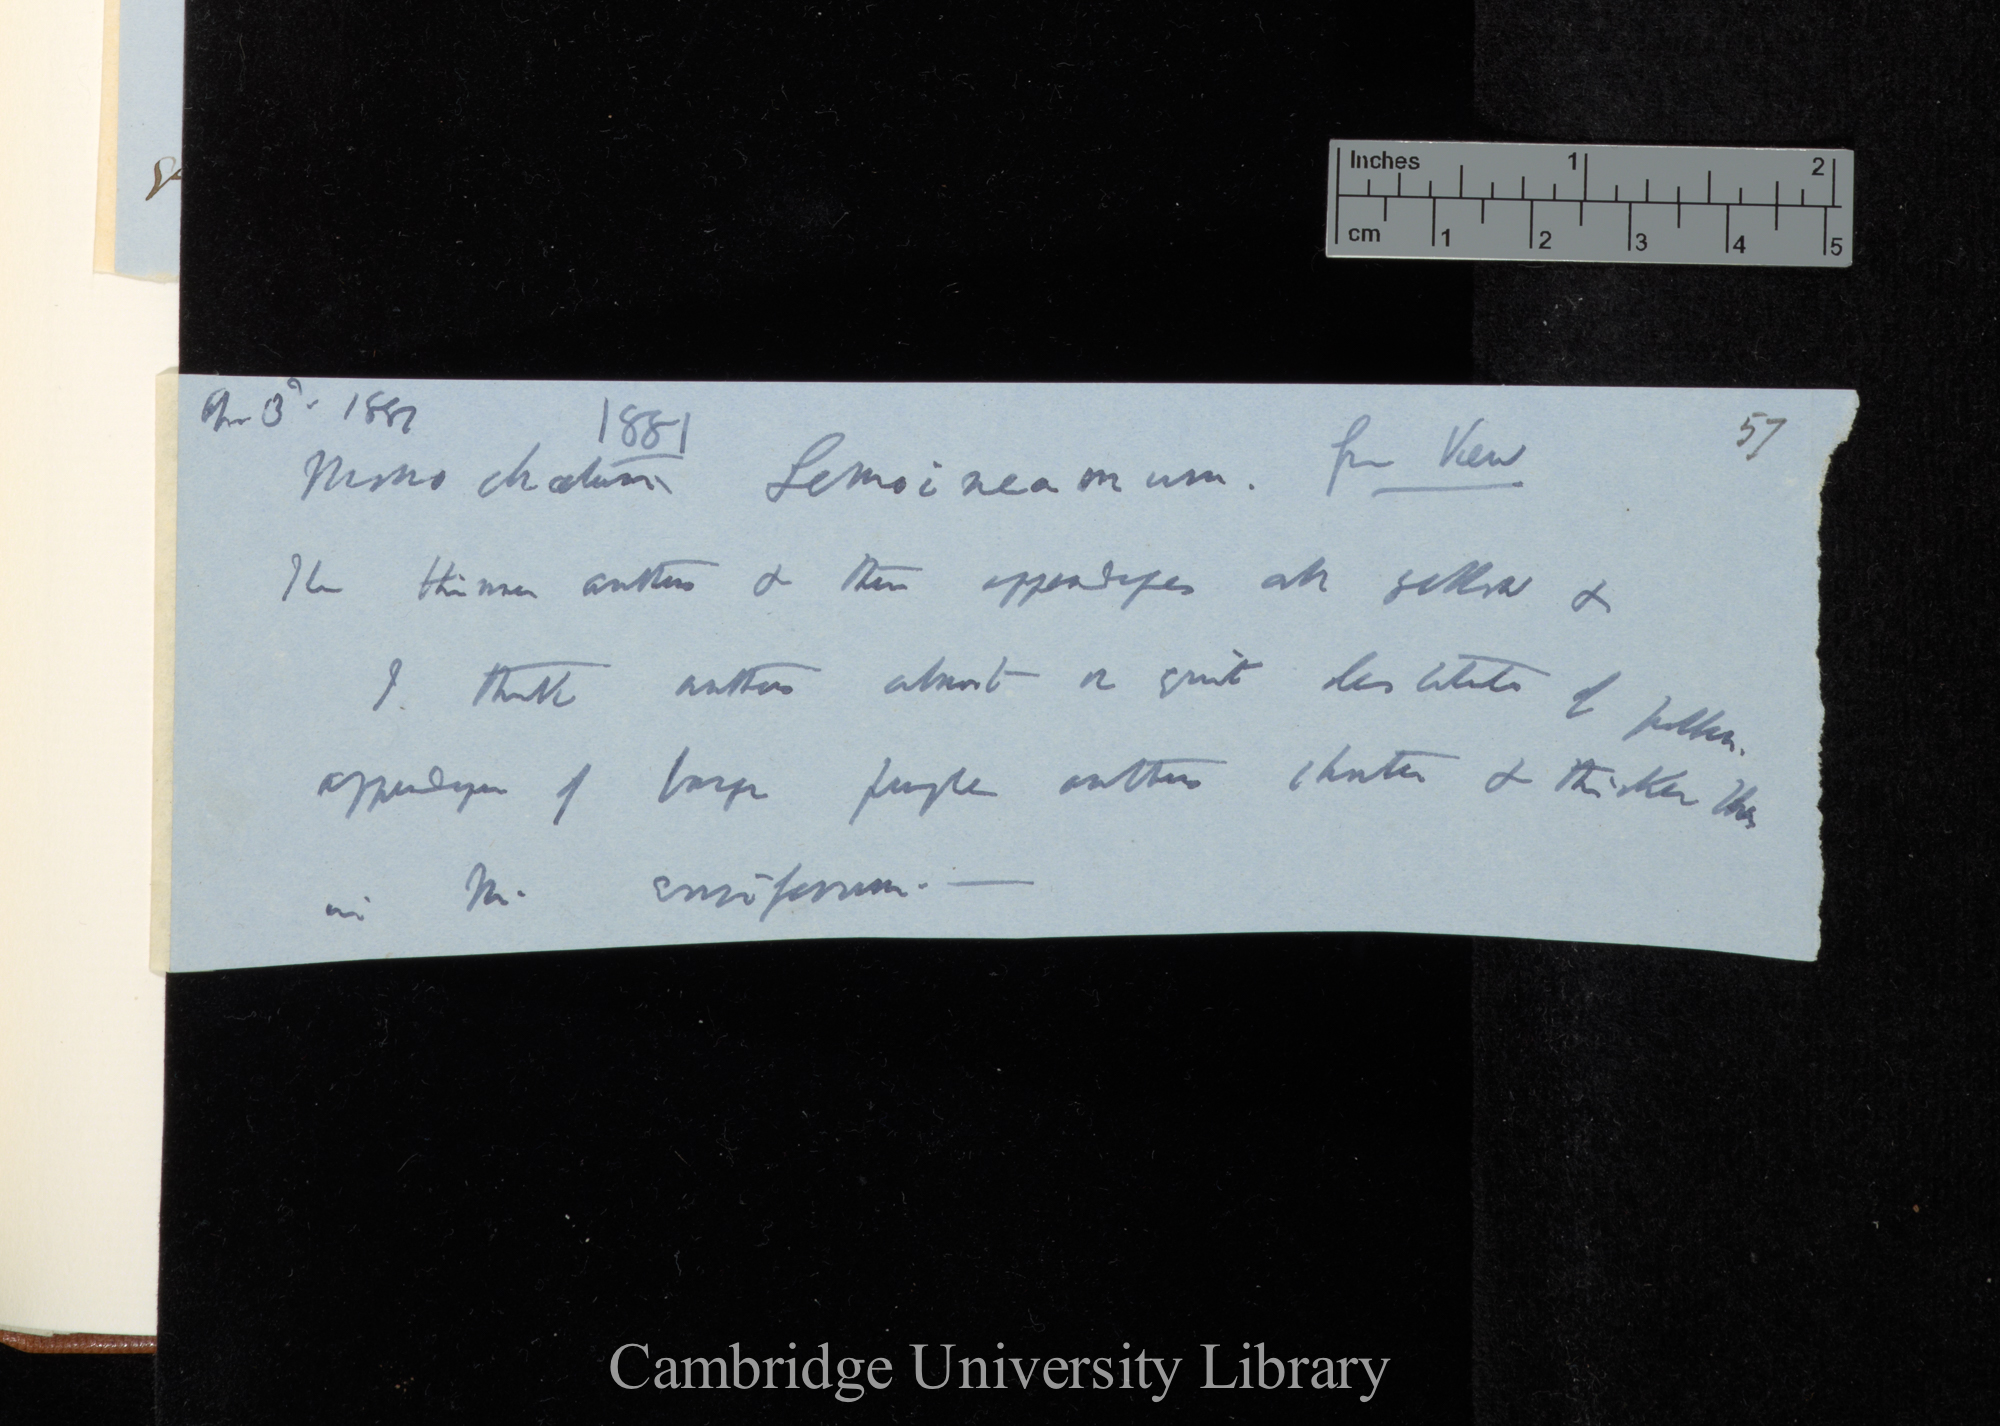 57
Apr 3d. 1881
1881
Monochætum Lemoineanum. from Kew
The thinner anthers & their appendages all yellow &
I think anthers almost or quite destitute of pollen.
appendages of large purple anthers shorter & thicker than
in M. ensiferum. —
Inches 1 2
cm 1 2 3 4 5
Cambridge University Library